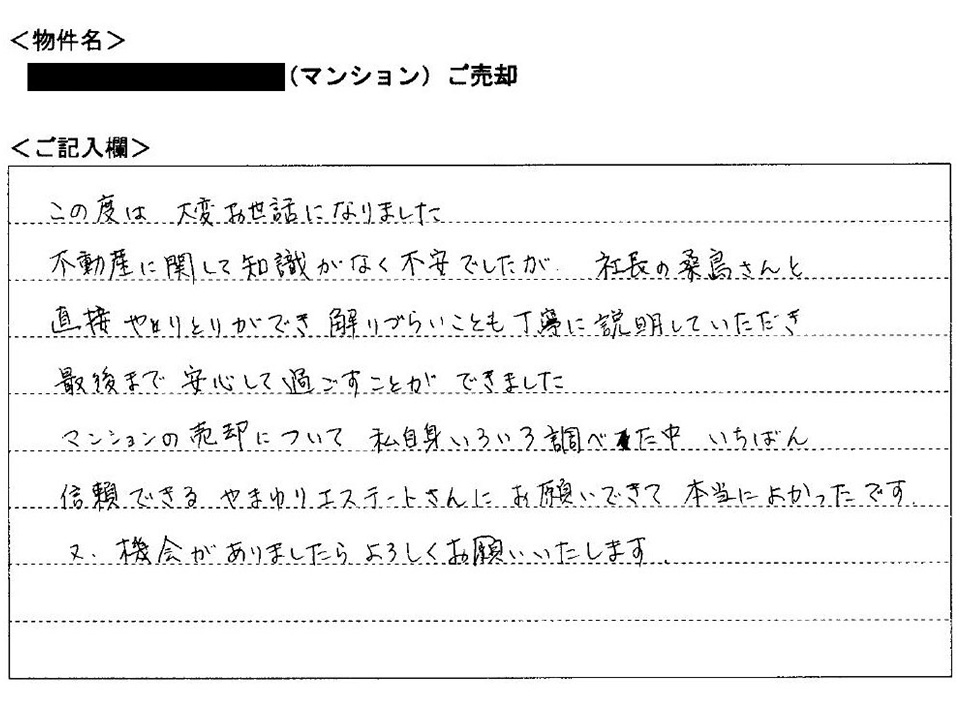 ＜物件名＞
（マンション）ご売却
＜ご記入欄＞
この度は 大変お世話になりました
不動産に関して知識がなく不安でしたが、社長の桑島さんと
直接やりとりができ 解りづらいことも丁寧に説明していただき
最後まで 安心して過ごすことが できました
マンションの売却について 私自身いろいろ調べた中 いちばん
信頼できる やまゆりエステートさんに お願いできて 本当によかったです.
又、機会がありましたら よろしくお願いいたします.